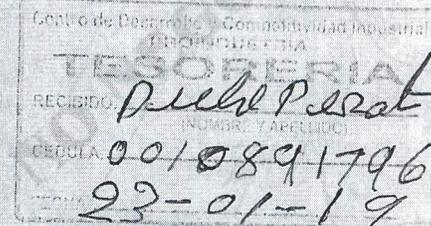 Centro de Desarrollo y Competitividad Industrial
PROINDUSTRIA
TESORERIA
RECIBIDO:
(NOMBRE Y APELLIDO)
CEDULA: 0010891796
FECHA 23-01-19